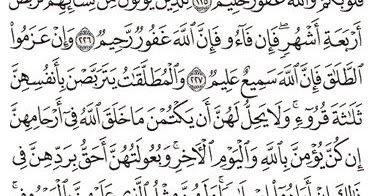 قُلُوبُكُمْ وَٱللَّهُ غَفُورٌ حَلِيمٌ ﴿٢٢٥﴾ لِّلَّذِينَ يُؤْلُونَ مِن نِّسَآئِهِمْ تَرَبُّصُ
أَرْبَعَةِ أَشْهُرٍ ۖ فَإِن فَآءُو فَإِنَّ ٱللَّهَ غَفُورٌ رَّحِيمٌ ﴿٢٢٦﴾ وَإِنْ عَزَمُوا۟
ٱلطَّلَٰقَ فَإِنَّ ٱللَّهَ سَمِيعٌ عَلِيمٌ ﴿٢٢٧﴾ وَٱلْمُطَلَّقَٰتُ يَتَرَبَّصْنَ بِأَنفُسِهِنَّ
ثَلَٰثَةَ قُرُوٓءٍ ۚ وَلَا يَحِلُّ لَهُنَّ أَن يَكْتُمْنَ مَا خَلَقَ ٱللَّهُ فِىٓ أَرْحَامِهِنَّ
إِن كُنَّ يُؤْمِنَّ بِٱللَّهِ وَٱلْيَوْمِ ٱلْءَاخِرِ ۚ وَبُعُولَتُهُنَّ أَحَقُّ بِرَدِّهِنَّ فِى